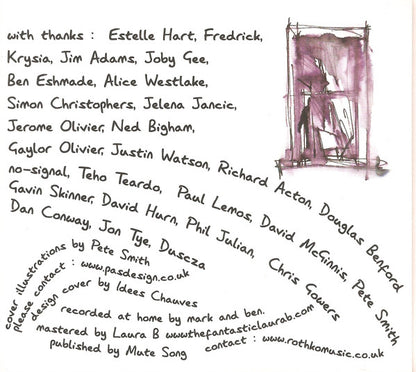 with thanks : Estelle Hart, Fredrick,
Krysia, Jim Adams, Joby Gee,
Ben Eshmade, Alice Westlake,
Simon Christophers, Jelena Jancic,
Jerome Olivier, Ned Bigham,
Gaylor Olivier, Justin Watson, Richard Acton, Douglas Benford
no-signal, Teho Teardo, Paul Lemos, David McGinnis, Pete Smith
Gavin Skinner, David Hurn, Phil Julian, Chris Gowers
Dan Conway, Jon Tye, Duscza
cover illustrations by Pete Smith
please contact : www.pasdesign.co.uk
design cover by Idees Chauves
recorded at home by mark and ben.
mastered by Laura B www.thefantasticlaurab.com
published by Mute Song contact : www.rothkomusic.co.uk